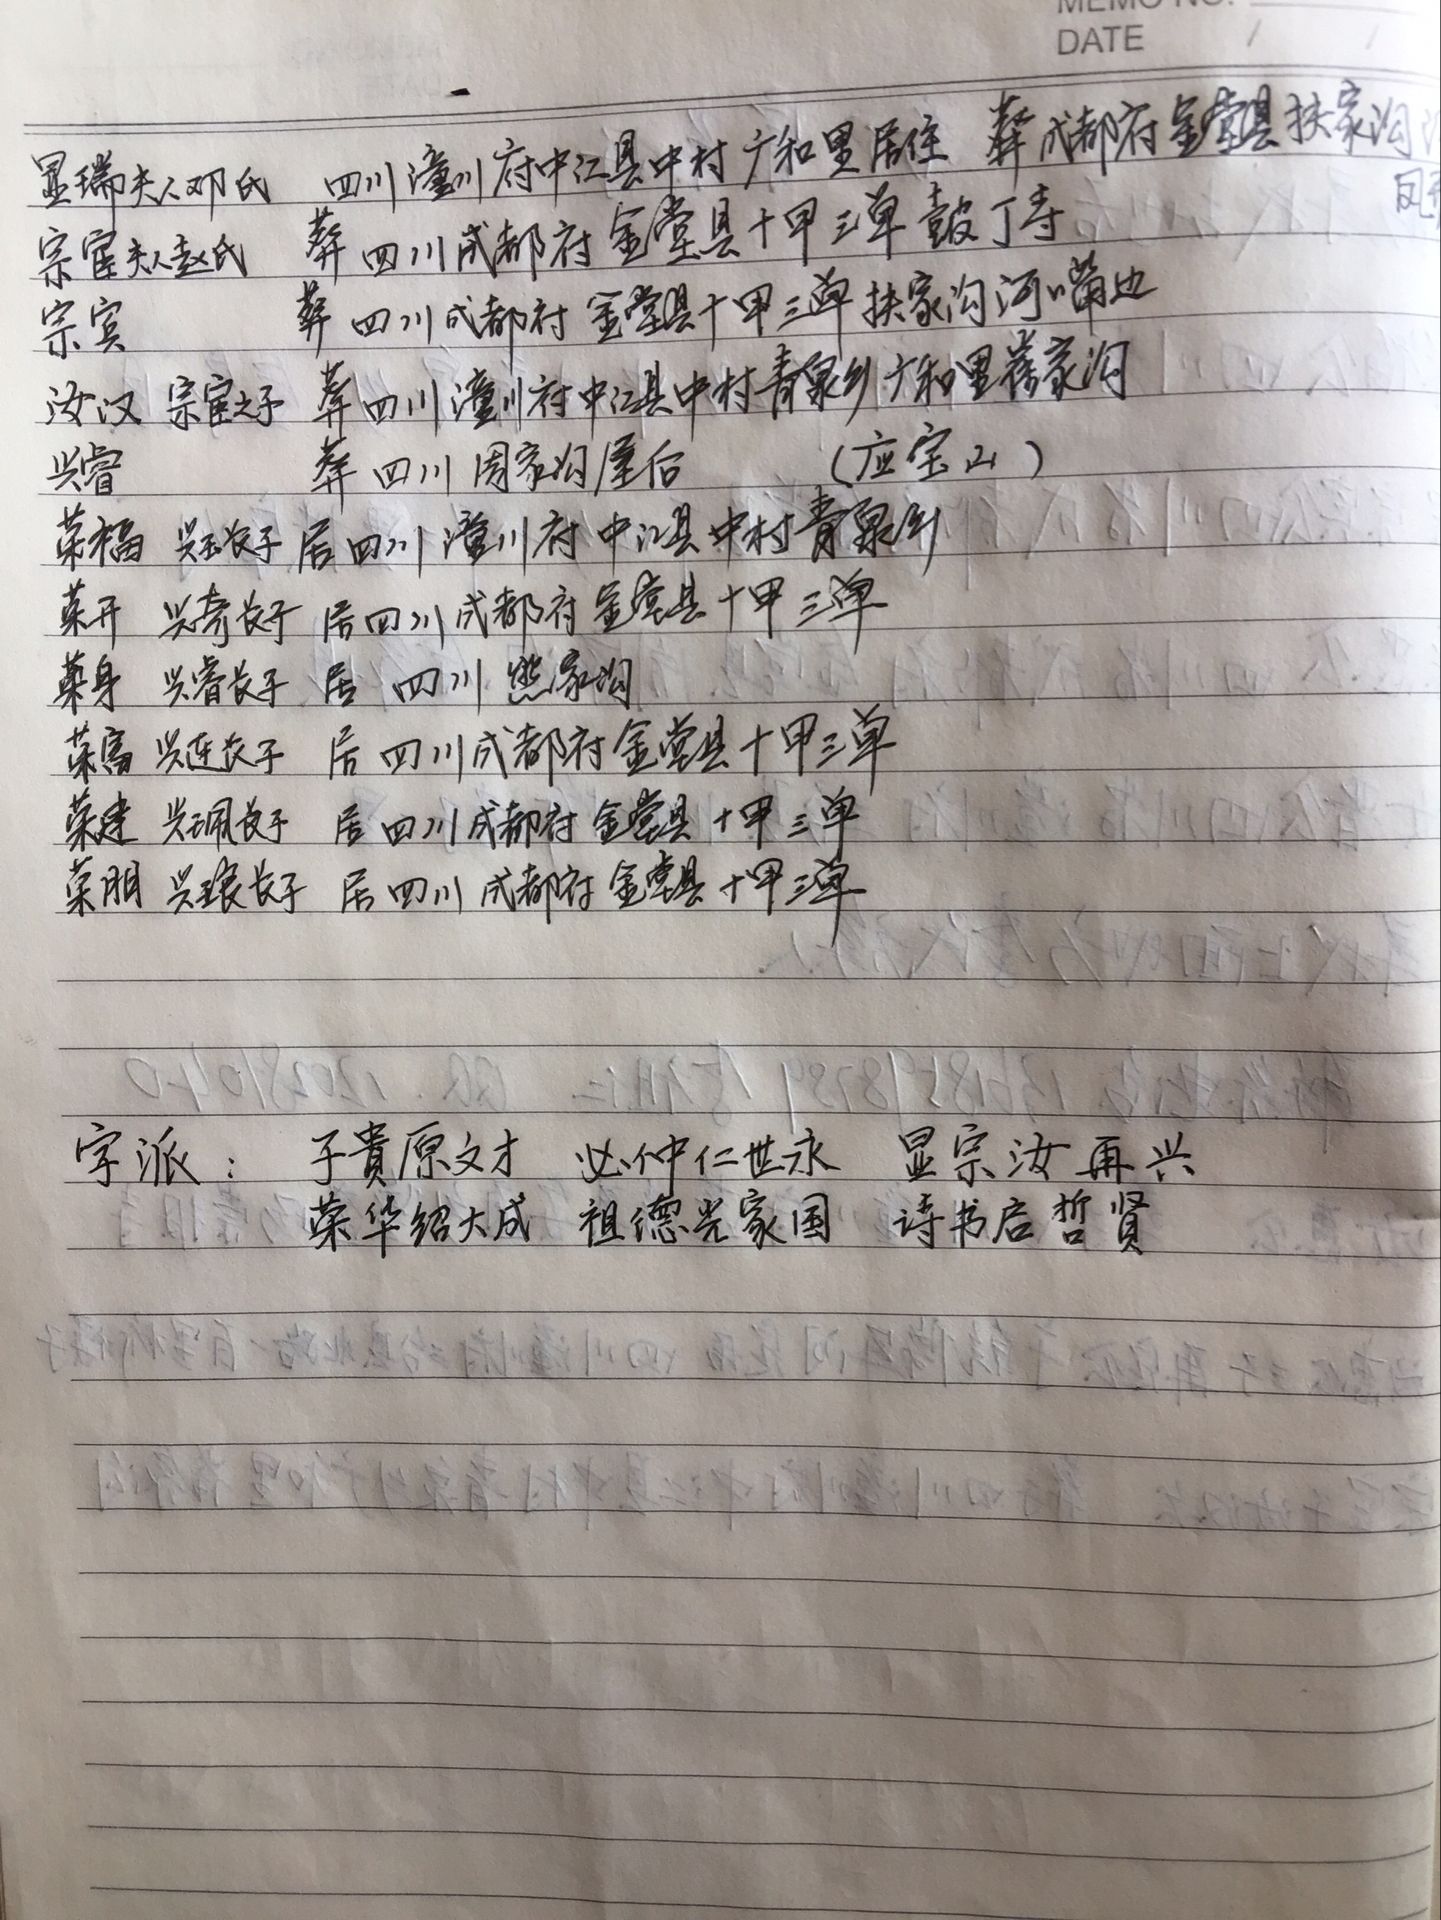 MEMO NO.
DATE / /
显瑞夫人邓氏 四川潼川府中江县中村广和里居住 葬成都府金堂县扶家沟
宗宦夫人赵氏 葬四川成都府金堂县十甲三单鼓丁寺
宗宾 葬四川成都府金堂县十甲三单扶家沟河嘴边
汝汉 宗宦之子 葬四川潼川府中江县中村青泉乡广和里蒋家沟
兴睿 葬四川周家沟屋后 (应宝山)
荣福 兴玉长子 居四川潼川府中江县中村青泉乡
荣开 兴奇长子 居四川成都府金堂县十甲三单
荣身 兴睿长子 居四川熊家沟
荣富 兴连长子 居四川成都府金堂县十甲三单
荣建 兴珮长子 居四川成都府金堂县十甲三单
荣朋 兴琅长子 居四川成都府金堂县十甲三单
字派： 子貴原文才 必仲仁世永 显宗汝再兴
荣华绍大成 祖德光家国 诗书启哲贤